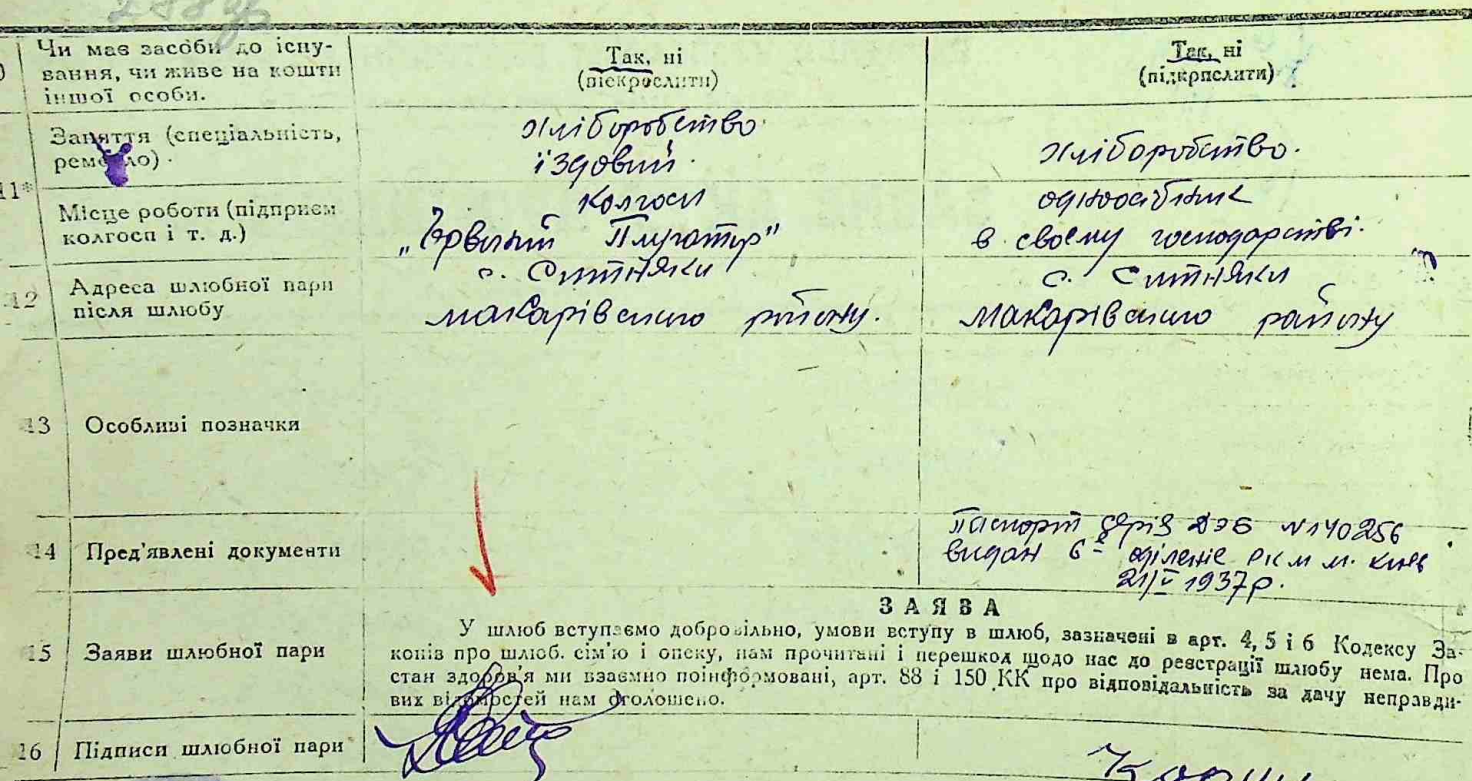 Чи має засоби до існу-
вання, чи живе на кошти
іншої особи.
Так, ні
(підкреслити)
Так, ні
(підкреслити)
11*
Заняття (спеціальність,
ремесло)
хліборобство
їздовий.
хліборобство.
Місце роботи (підприєм
колгосп і т. д.)
колгосп
„Червоний Плугатир"
одноосібник
в своєму господарстві.
12
Адреса шлюбної пари
після шлюбу
с. Ситняки
макарівського району.
с. Ситняки
макарівського району
13
Особливі позначки
14
Пред'явлені документи
Паспорт серія № 140256
видан 6 - оділеніе РКМ м. Київ
21/V 1937р.
15
Заяви шлюбної пари
ЗАЯВА
У шлюб вступаємо добровільно, умови вступу в шлюб, зазначені в арт. 4, 5 і 6 Кодексу За-
конів про шлюб. сім'ю і опеку, нам прочитані і перешкод щодо нас до реєстрації шлюбу нема. Про
стан здоров'я ми взаємно поінформовані, арт. 88 і 150 КК про відповідальність за дачу неправди-
вих відомостей нам оголошено.
16
Підписи шлюбної пари